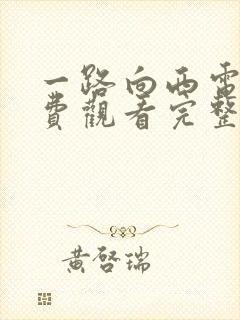 一路向西電
費觀看完整
黃啓瑞